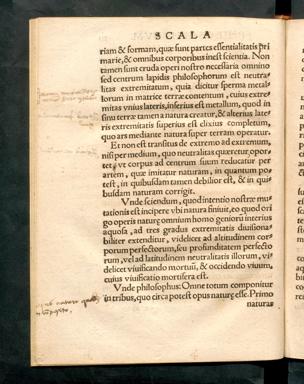 SCALA
riam & formam, quæ sunt partes essentialitatis pri
mariæ, & omnibus corporibus inest scientia. Non
tamen sunt cruda operi nostro necessaria omnino
sed centrum lapidis philosophorum est neutra-
litas extremitatum, quia dicitur sperma metal/
lorum in matrice terræ contentum, cuius extre-
mitas vnius lateris, inferius est metallum, quod in
sinu terræ tamen a natura creatur, & alterius late/
ris extremitatis superius est elixius completum,
quo ars mediante natura super terram operatur.
Et non est transitus de extremo ad extremum,
nisi per medium, quo neutralitas quæretur, opor-
tet, vt corpus ad centrum suum reducatur per
artem, quæ imitatur naturam, in quantum po-
test, in quibusdam tamen debilior est, & in qui-
busdam naturam corrigit.
Vnde sciendum, quod intentio nostræ mu-
tationis est incipere vbi natura finiuit, & quod ori
go operis naturę omnium homo geniorũ interius
aquosa, ad tres gradus extremitatis diuisiona-
biliter extenditur, videlicet ad altitudinem cor-
porum perfectorum, seu profunditatem perfecto
rum, vel ad latitudinem neutralitatis illorum, vi-
delicet viuificando mortuũ, & occidendo viuum,
cuius viuificatio mortifera est.
Vnde philosophus: Omne totum componitur
in tribus, quo circa potest opus naturę esse. Primo
naturæ